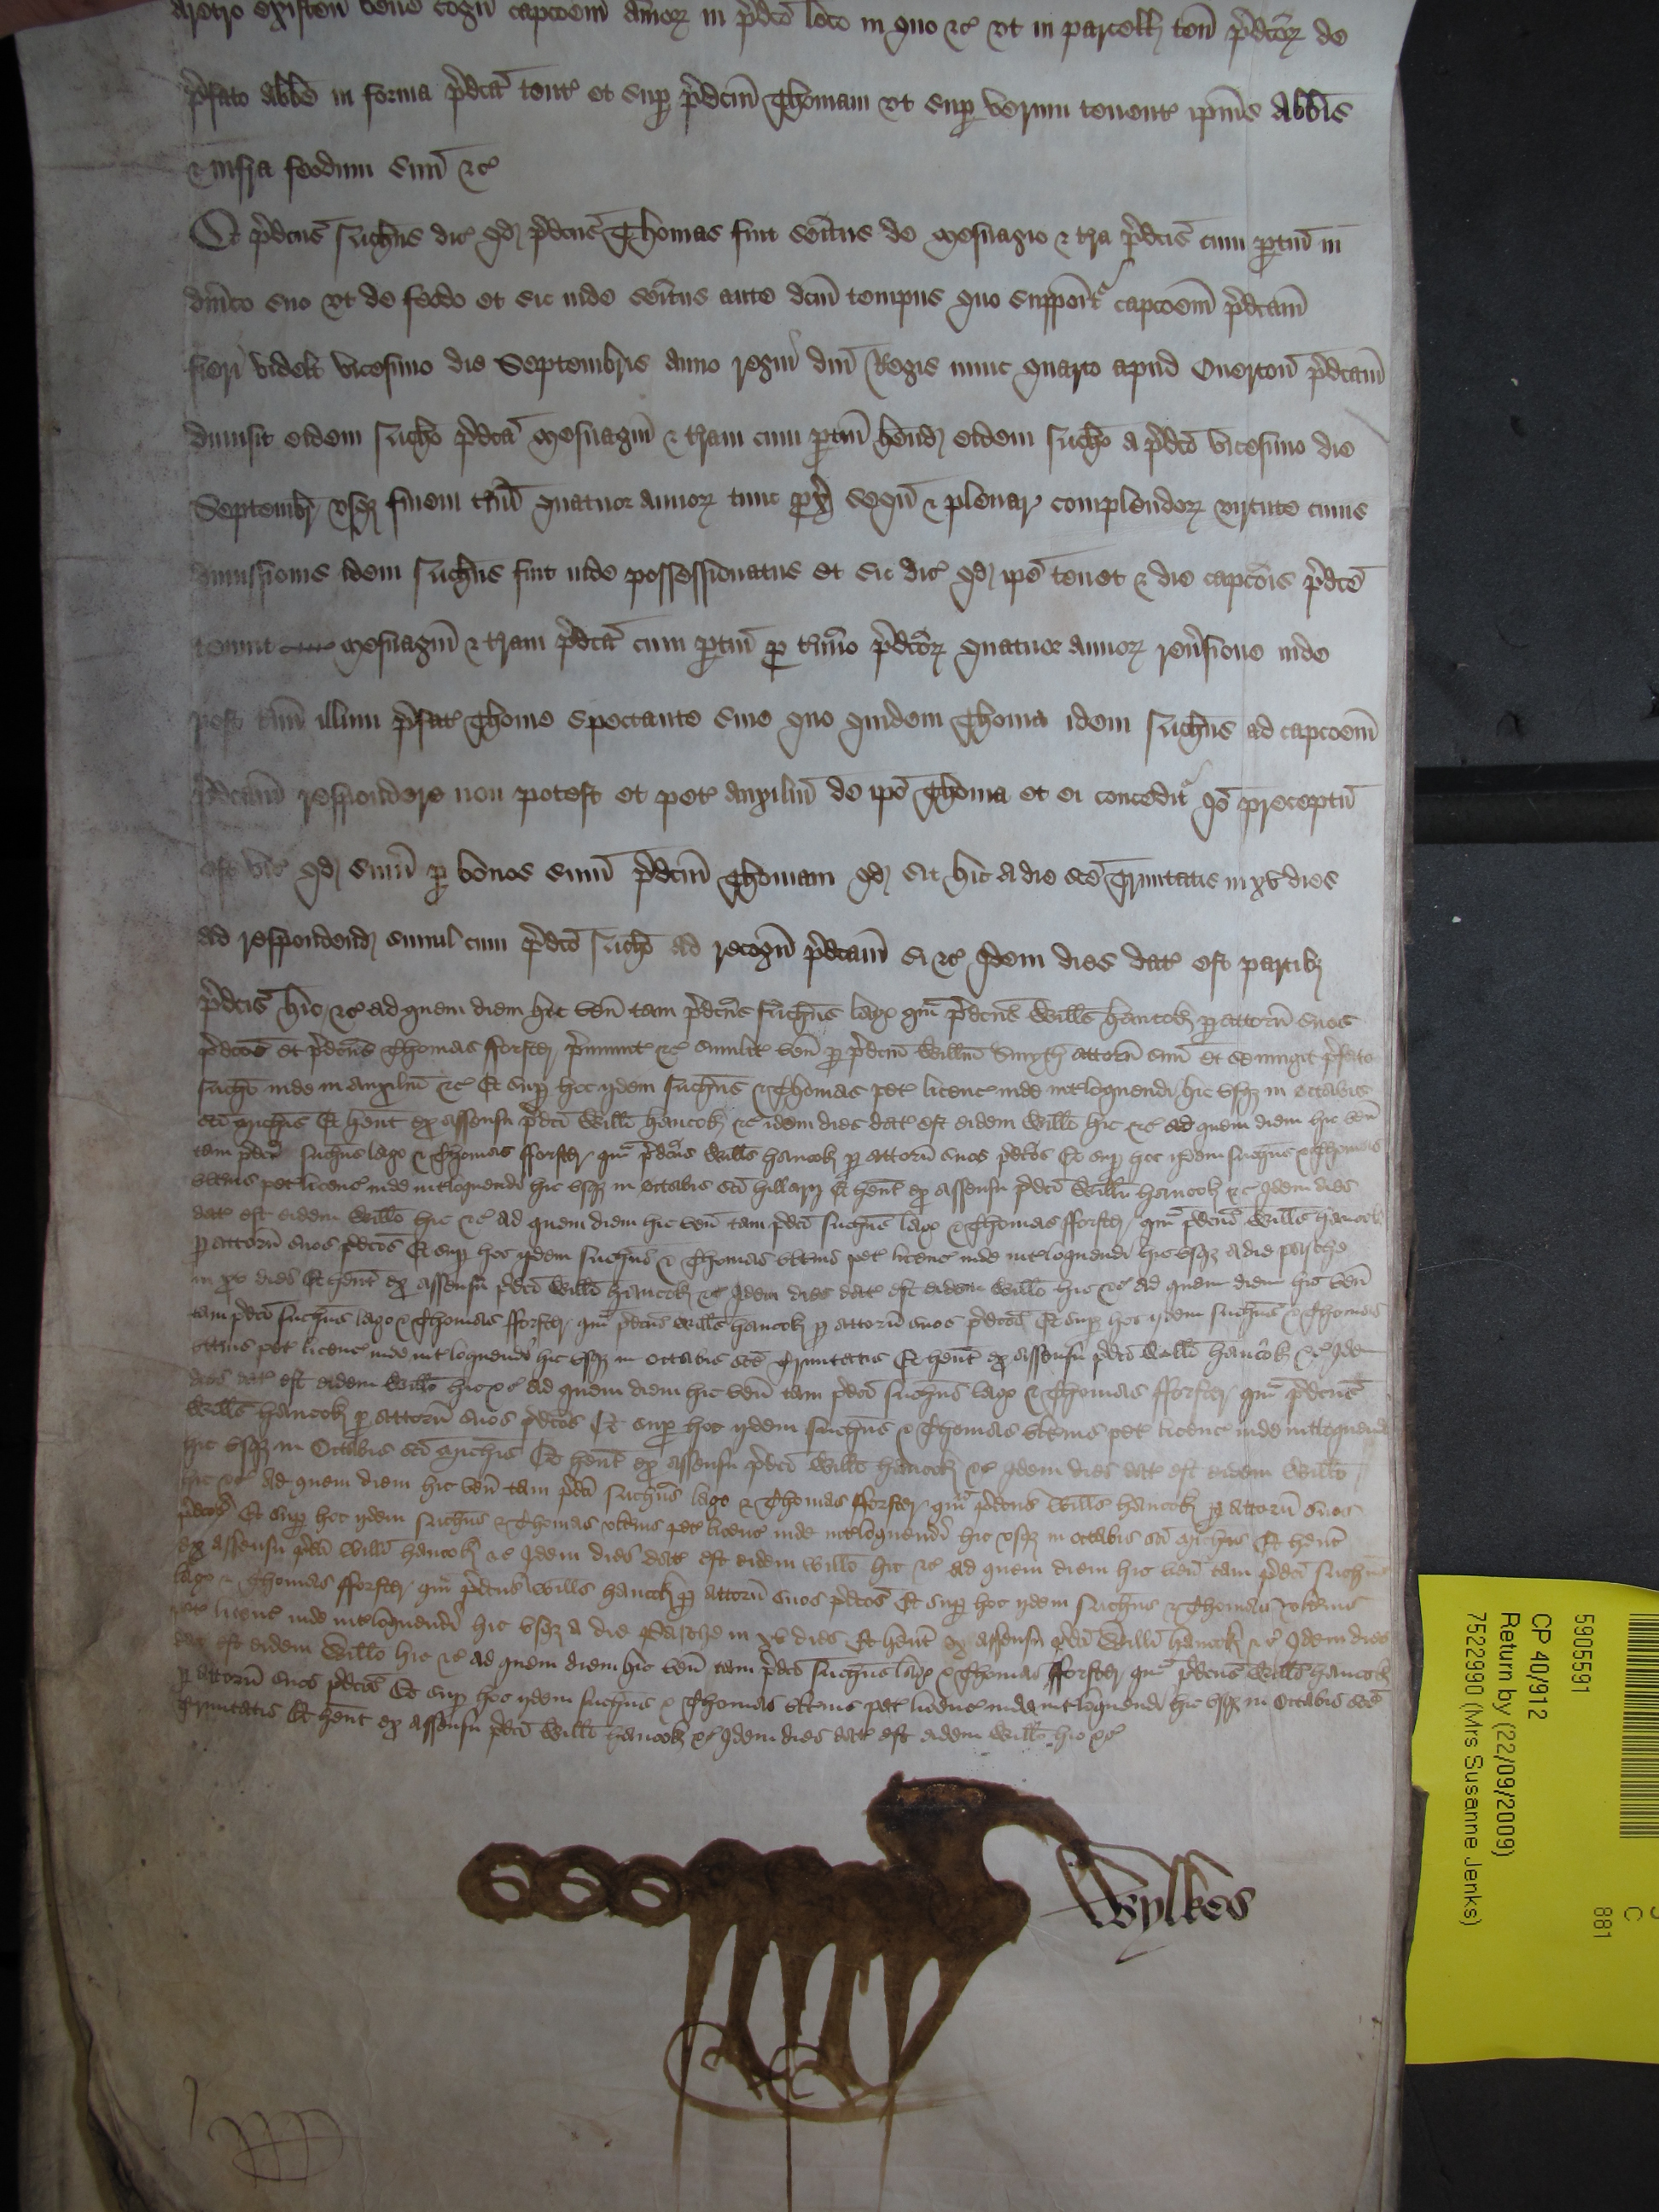 aretro existen bene cogn capcoem averior in pdco loco in quo &c ut in parcell ten pdcor de
pfato Abbe in forma pdca tent et sup pdcm Thomam ut sup verum tenent ipius Abbis
& infra feodum suu &c
Et pdcus Richus dic qd pdcus Thomas fuit seitus de mesuagio & tra pdcis cum ptin in
dnico suo ut de feodo et sic inde seitus ante dcm tempus quo supponit capcoem pdcam
fieri videlt vicesimo die Septembris anno regni dni Regis nunc quarto apud Overton pdcam
dimisit eidem Richo pdca mesuagiu & tram cum ptin hend eidem Richo a pdco vicesimo die
Septembr usq finem tmi quatuor annor tunc px sequ & plenar complendor virtute cuius
dimissionis idem Richus fuit inde possessionatus et sic dic qd ipe tenet & die capcois pdce
tenuit mesuagiu & tram pdca cum ptin p tmino pdcor quatuor annor revsione inde
post tmu illum pfat Thome spectante sine quo quidem Thoma idem Richus ad capcoem
pdcam respondere non potest et pet auxiliu de ipo Thoma et ei conceditr Io preceptu
est vic qd sum p bonos sum pdcm Thomam qd sit hic a die sce Trinitatis in xv dies
ad respondend simul cum pdco Richo ad recogn pdcam si &c Idem dies dat est partib
pdcis hic &c ad quem diem hic ven tam pdcus Richus Lago qm pdcus Wills Hancok p attorn suos
pdcos et pdcus Thomas fforster pmunit &c similit ven p pdcm Willm Smyth attorn suu Et se iungit pfato
Richo inde in auxiliu &c Et sup hoc ijdem Richus & Thomas pet licenc inde intloquendi hic usq in octabis
sci Michis Et hent ex assensu pdci Willi Hancok &c idem dies dat est eidem Willo hic &c ad quem diem hic ven
tam pdci Richus Lago & Thomas fforster qm pdcus Wills Hancok p attorn suos pdcos Et sup hoc ijdem Richus & Thomas
ultius pet licenc inde intloquendi hic usq in octabis sci Hillarij Et hent ex assensu pdci Willi Hancok &c Idem dies
dat est eidem Willo hic &c ad quem diem hic ven tam pdci Richus Lago & Thomas fforster qm pdcus Wills Hancok
p attorn suos pdcos Et sup hoc ijdem Richus & Thomas ultius pet licenc inde intloquendi hic usq a die pasche
in xv dies Et hent ex assensu pdci Willi Hancok &c Idem dies dat est eidem Willo hic &c ad quem diem hic ven
tam pdci Richus Lago & Thomas fforster qm pdcus Wills Hancok p attorn suos pdcos Et sup hoc ijdem Richus & Thomas
ultius pet licenc inde intloquendi hic usq in octabis sce Trinitatis Et hent ex assensu pdci Willi Hancok &c Idem
dies dat est eidem Willo hic &c ad quem diem hic ven tam pdci Richus Lago & Thomas fforster qm pdcus
Wills Hancok p attorn suos pdcos Et sup hoc ijdem Richus & Thomas ultius pet licenc inde intloquendi
hic usq in Octabis sci Michis Et hent ex assensu pdci Willi Hancok &c Idem dies dat est eidem Willo
hic &c ad quem diem hic ven tam pdci Richus Lago & Thomas fforster qm pdcus Wills Hancok p attorn suos
pdcos Et sup hoc ijdem Richus & Thomas ultius pet licenc inde intloquendi hic usq in octabis sci Michis Et hent
ex assensu pdci Willi Hancok &c Idem dies dat est eidem Willo hic &c ad quem diem hic ven tam pdci Richus
Lago & Thomas fforster qm pdcus Wills Hancok p attorn suos pdcos Et sup hoc ijdem Richus & Thomas ultius
pet licenc inde intloquendi hic usq a die Pasche in xv dies Et hent ex assensu pdci Willi Hancok &c Idem dies
dat est eidem Willo hic &c ad quem diem hic ven tam pdci Richus Lago & Thomas fforster qm pdcus Wills Hancok
p attorn suos pdcos Et sup hoc ijdem Richus & Thomas ultius pet licenc inde intloquendi hic usq in Octabis sce
Trinitatis Et hent ex assensu pdci Willi Hancok &c Idem dies dat est eidem Willo hic &c
Wylkes
5905591
CP 40/912
Return by (22/09/2009)
7522990 (Mrs Susanne Jenks)
C
881